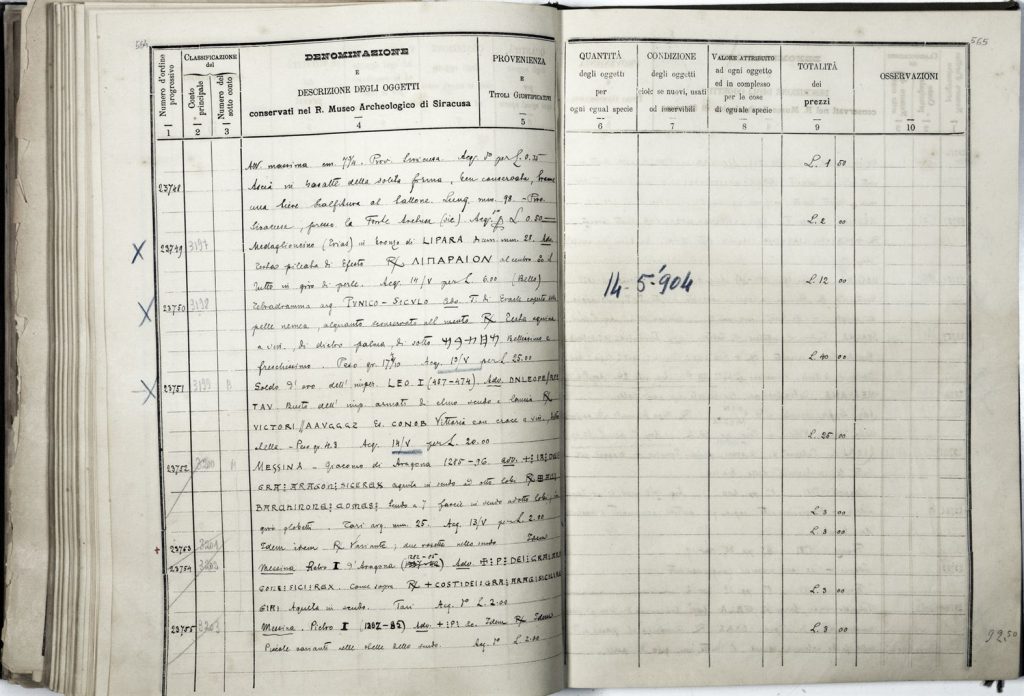 564
565
Numero d'ordine progressivo
CLASSIFICAZIONE del
Conto principale
Numero del sotto conto
DENOMINAZIONE
E
DESCRIZIONE DEGLI OGGETTI
conservati nel R. Museo Archeologico di Siracusa
PROVENIENZA
E
TITOLI GIUSTIFICATIVI
QUANTITÀ
degli oggetti
per
ogni egual specie
CONDIZIONE
degli oggetti
cioè: se nuovi, usati
od inservibili
VALORE ATTRIBUITO
ad ogni oggetto
ed in complesso
per le cose
di eguale specie
TOTALITÀ
dei
prezzi
OSSERVAZIONI
1 2 3 4 5 6 7 8 9 10
massima cm. Prov. Siracusa. Acq. per L. 0.75
L. 1 50
23748
Ascia in basalte della solita forma, ben conservata,
una lieve scalfitura al tallone. Lung. mm. 98. - Prov.
Siracusa, presso la Fonte Aretusa (sic). Acq. L 0.50
L. 2 00
23749 3197
Medaglioncino (Trias) in bronzo di LIPARA mm. 28. Adv.
Testa pileata di Efesto R/ ΛΙΠΑΡΑΙΟΝ al centro
tutto in giro di perle. Acq. 14/V per L. 6.00 (Bello)
L. 12 00
14-5-904
23750 3198
Tetradramma arg. PUNICO-SICULO adv. T. di Eracle coperta
pelle nemea, alquanto sconservato nel mento R/ Testa equina
a sin., di dietro palma, di sotto Bellissimo e
freschissimo. Peso gr. Acq. 13/V per L. 25.00
L. 40 00
23751 3199
Soldo d'oro dell'imper. LEO. I (457-474) Adv. DNLEOPE/RPE
TAV. Busto dell'imp. armati di elmo scudo e lancia R/
VICTORI//AAVGGGZ Es. CONOB Vittoria con croce a sin.,
stella - Peso gr. 4.3 Acq. 14/V per L. 20.00
L. 25 00
23752 3200
MESSINA - Giacomo di Aragona 1285-96. adv.
GRA:ARAGON:SICEREX aquila in scudo
giro globetti. Tarì arg. mm. 25. Acq. 13/V per L. 2.00
L. 3 00
23753 3201
Idem idem R/ Variante; due rosette nello scudo Idem
L. 3 00
23754 3202
Messina Pietro I d'Aragona (1282-85) Adv.
come sopra R/ +COSTIDEI:GRA:ARAG:SICIL
Aquila in scudo. Tarì Acq. L. 2.00
L. 3 00
23755 3203
Messina. Pietro I (1282-85) Adv. Idem R/ Idem
Piccole varianti nelle stelle dello scudo. Acq. L. 2.00
L. 3 00
92.50